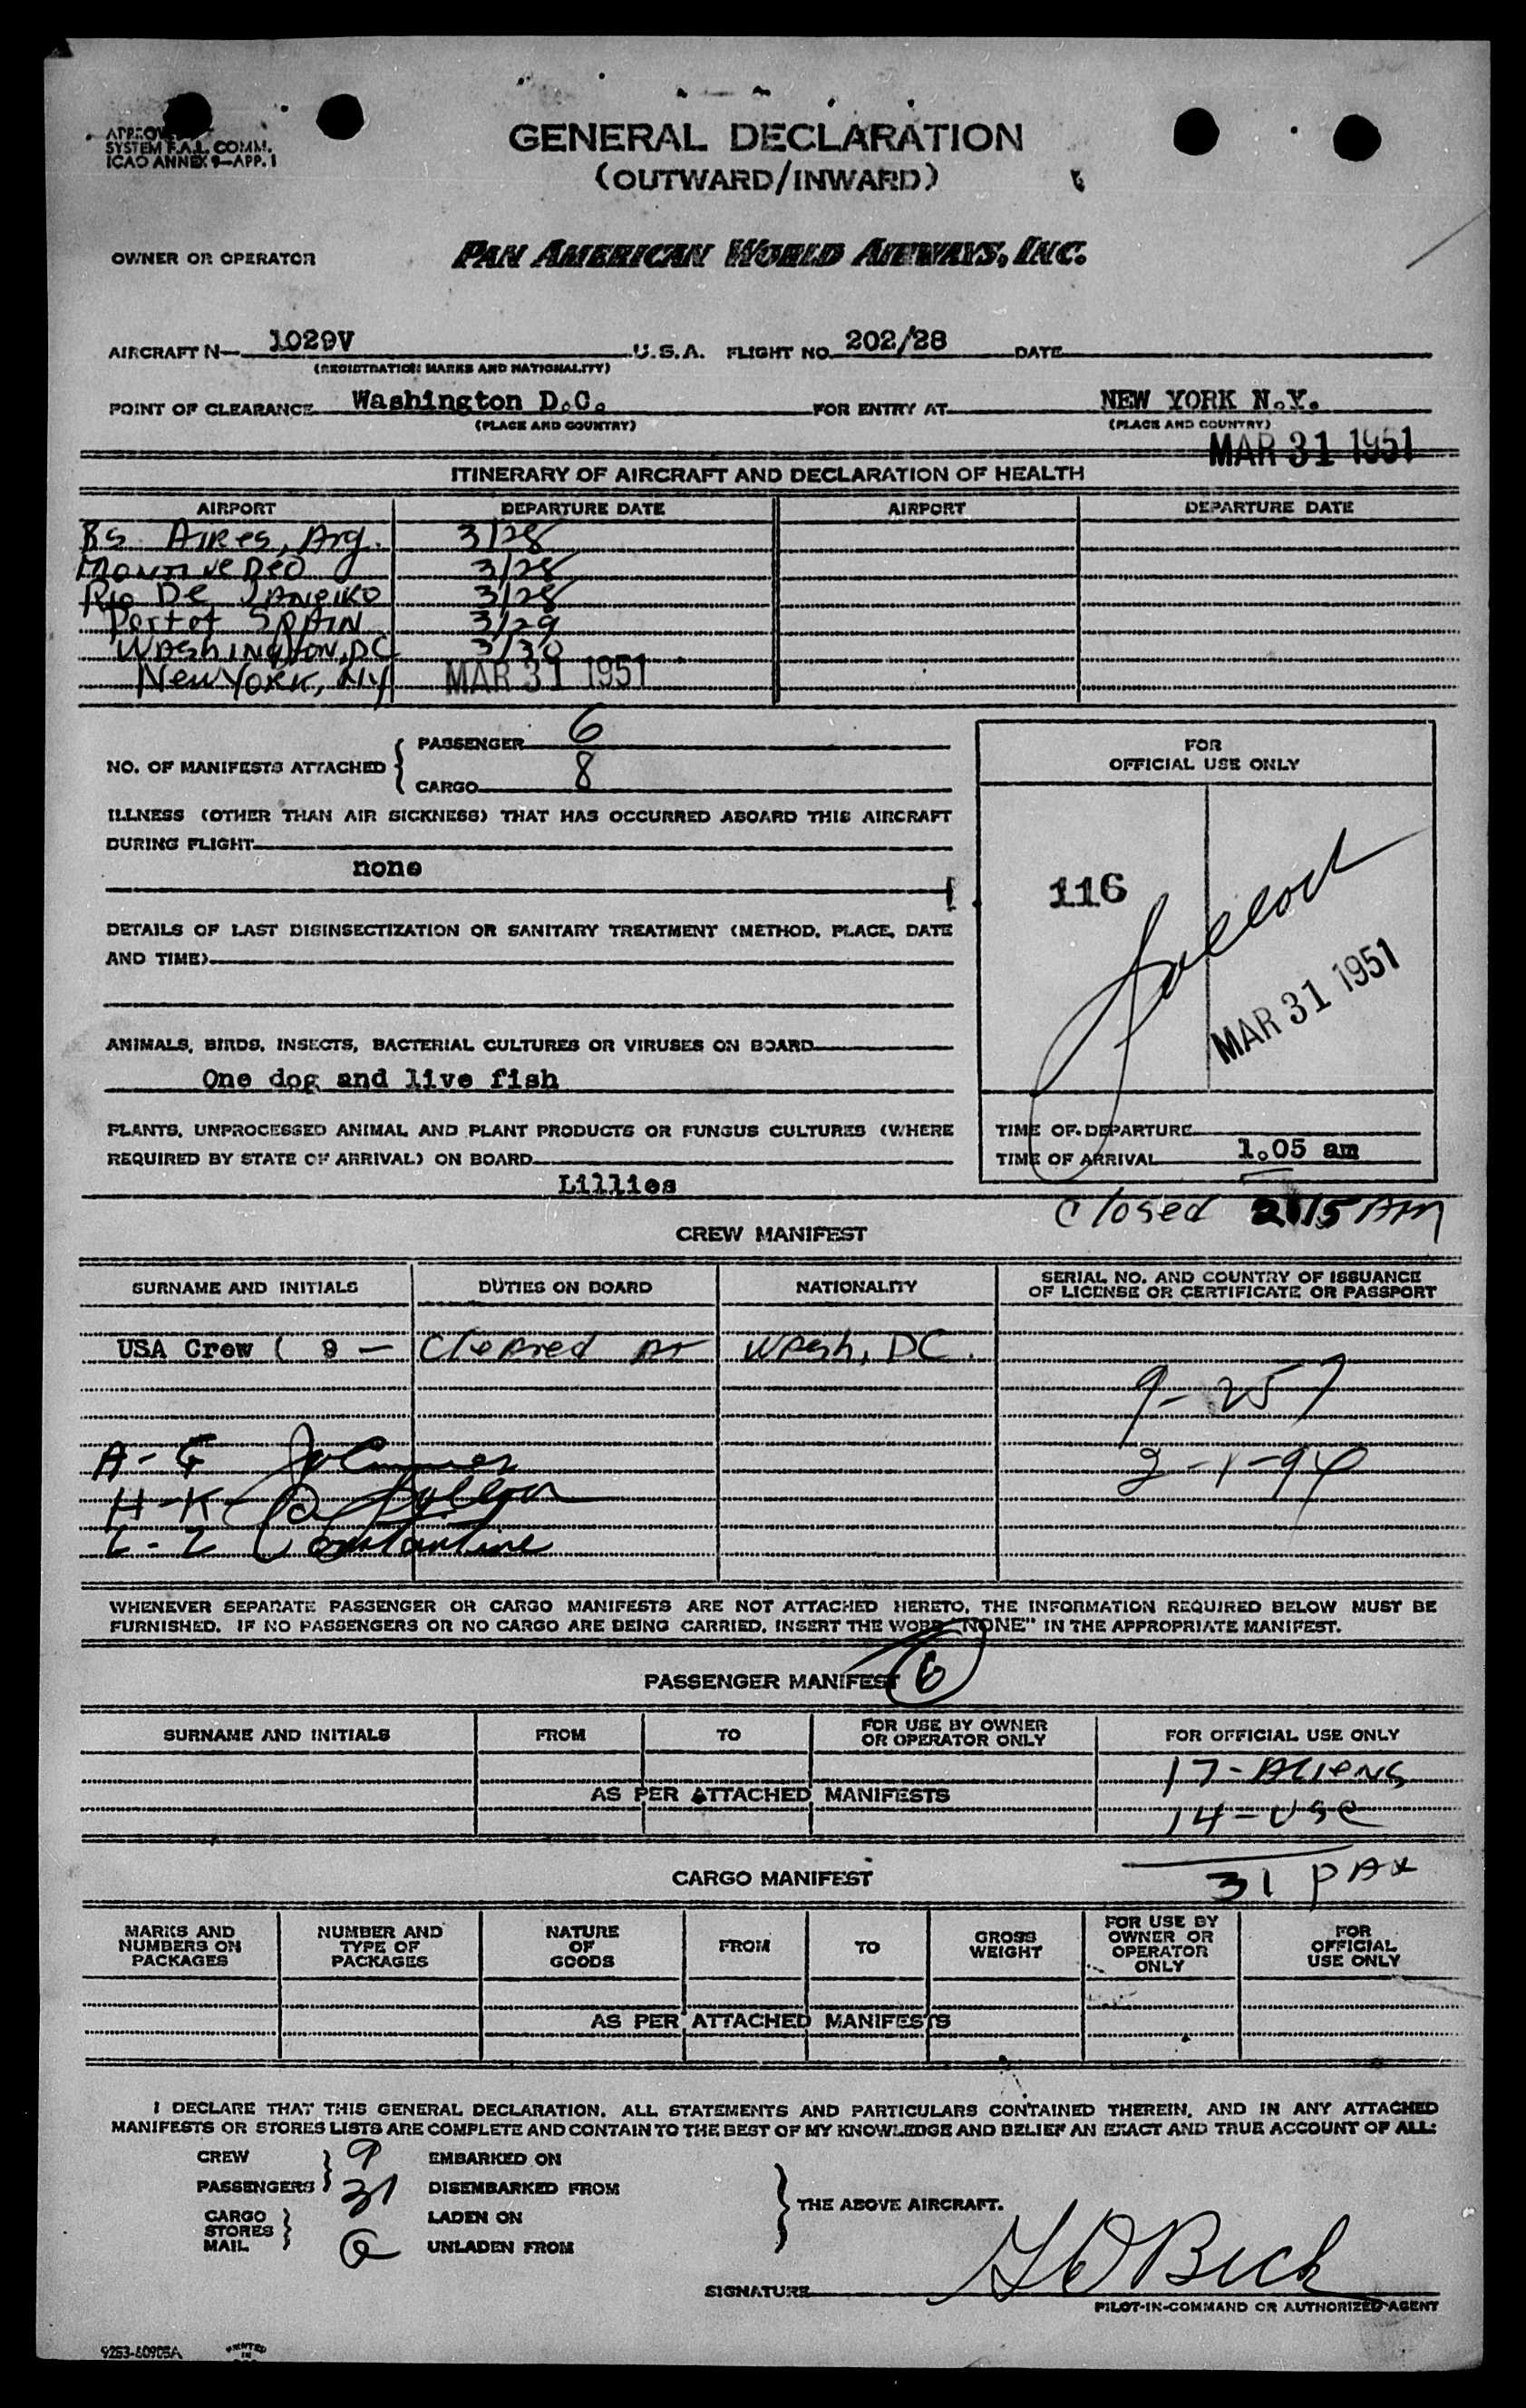 SYSTEM F.A.L. COMM.
ICAO ANNEX 9—APP. 1
GENERAL DECLARATION
(OUTWARD/INWARD)
OWNER OR OPERATOR PAN AMERICAN WORLD AIRWAYS, INC.
AIRCRAFT N— 1029V U.S.A. FLIGHT NO. 202/28 DATE
(REGISTRATION MARKS AND NATIONALITY)
POINT OF CLEARANCE Washington D.C. FOR ENTRY AT NEW YORK N.Y.
(PLACE AND COUNTRY) (PLACE AND COUNTRY)
MAR 31 1951
ITINERARY OF AIRCRAFT AND DECLARATION OF HEALTH
AIRPORT DEPARTURE DATE AIRPORT DEPARTURE DATE
Bs Aires, Arg. 3/28
Montivedeo 3/28
Rio De Janeiro 3/28
Port of Spain 3/29
Washington, DC 3/30
New York, NY MAR 31 1951
NO. OF MANIFESTS ATTACHED { PASSENGER 6
CARGO 8
FOR
OFFICIAL USE ONLY
ILLNESS (OTHER THAN AIR SICKNESS) THAT HAS OCCURRED ABOARD THIS AIRCRAFT
DURING FLIGHT
none
116
MAR 31 1951
DETAILS OF LAST DISINSECTIZATION OR SANITARY TREATMENT (METHOD, PLACE, DATE
AND TIME)
ANIMALS, BIRDS, INSECTS, BACTERIAL CULTURES OR VIRUSES ON BOARD
One dog and live fish
PLANTS, UNPROCESSED ANIMAL AND PLANT PRODUCTS OR FUNGUS CULTURES (WHERE
REQUIRED BY STATE OF ARRIVAL) ON BOARD
Lillies
TIME OF DEPARTURE
TIME OF ARRIVAL 1.05 am
Closed 2:15 AM
CREW MANIFEST
SURNAME AND INITIALS DUTIES ON BOARD NATIONALITY SERIAL NO. AND COUNTRY OF ISSUANCE
OF LICENSE OR CERTIFICATE OR PASSPORT
USA Crew ( 9 — Cleared at Wash, DC.
9-257
A-G
2-1-94
H-K
L-Z Constantine
WHENEVER SEPARATE PASSENGER OR CARGO MANIFESTS ARE NOT ATTACHED HERETO, THE INFORMATION REQUIRED BELOW MUST BE
FURNISHED. IF NO PASSENGERS OR NO CARGO ARE BEING CARRIED, INSERT THE WORD "NONE" IN THE APPROPRIATE MANIFEST.
PASSENGER MANIFEST 6
SURNAME AND INITIALS FROM TO FOR USE BY OWNER
OR OPERATOR ONLY FOR OFFICIAL USE ONLY
17-Aliens
AS PER ATTACHED MANIFESTS
14-USC
31 pax
CARGO MANIFEST
MARKS AND
NUMBERS ON
PACKAGES
NUMBER AND
TYPE OF
PACKAGES
NATURE
OF
GOODS
FROM
TO
GROSS
WEIGHT
FOR USE BY
OWNER OR
OPERATOR
ONLY
FOR
OFFICIAL
USE ONLY
AS PER ATTACHED MANIFESTS
I DECLARE THAT THIS GENERAL DECLARATION, ALL STATEMENTS AND PARTICULARS CONTAINED THEREIN, AND IN ANY ATTACHED
MANIFESTS OR STORES LISTS ARE COMPLETE AND CONTAIN TO THE BEST OF MY KNOWLEDGE AND BELIEF AN EXACT AND TRUE ACCOUNT OF ALL:
CREW 9 EMBARKED ON
PASSENGERS 31 DISEMBARKED FROM
THE ABOVE AIRCRAFT.
CARGO LADEN ON
STORES
MAIL UNLADEN FROM
SIGNATURE
PILOT-IN-COMMAND OR AUTHORIZED AGENT
PRINTED
IN